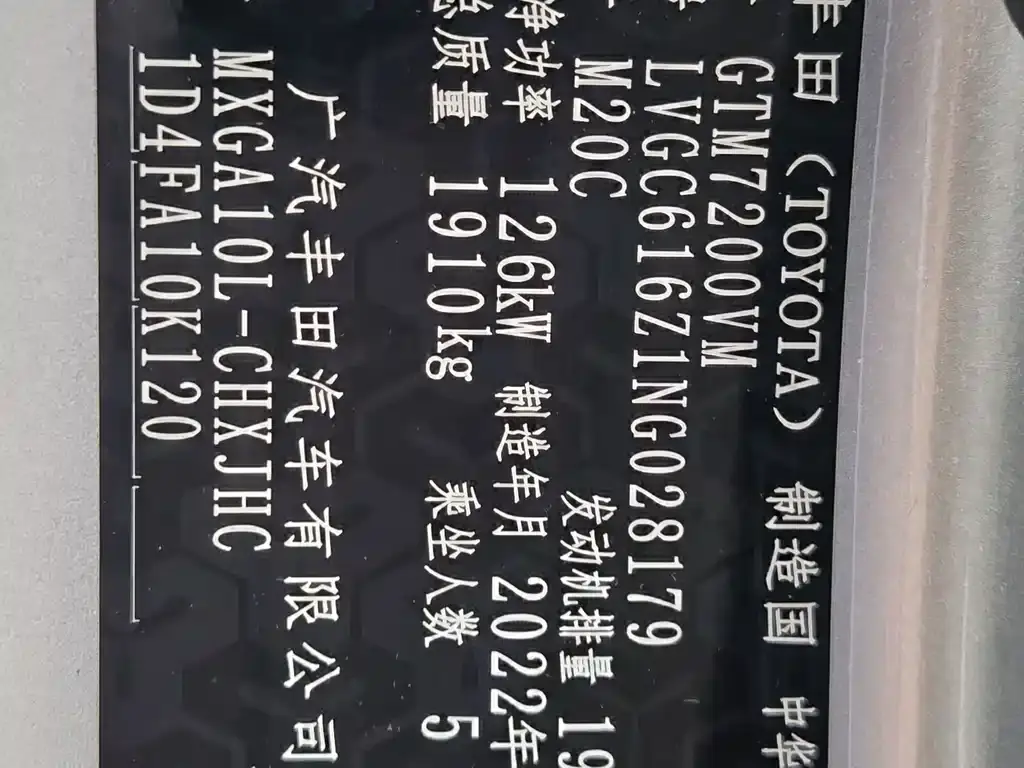 丰田（TOYOTA） 制造国 中华
GTM7200VM
LVGC616Z1NG028179
M20C 发动机排量 19
净功率 126kW 制造年月 2022年
总质量 1910kg 乘坐人数 5
广汽丰田汽车有限公司
MXGA10L-CHXJHC
1D4FA10K120